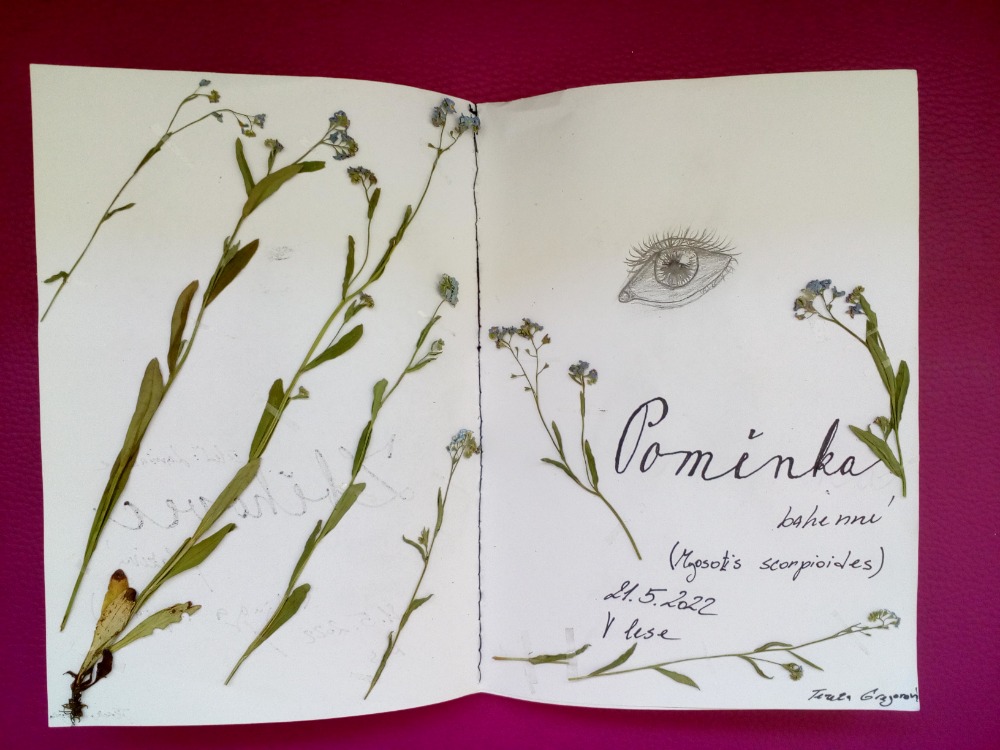 Pomněnka
bahenní
(Myosotis scorpioides)
21.5.2022
V lese
Tereza